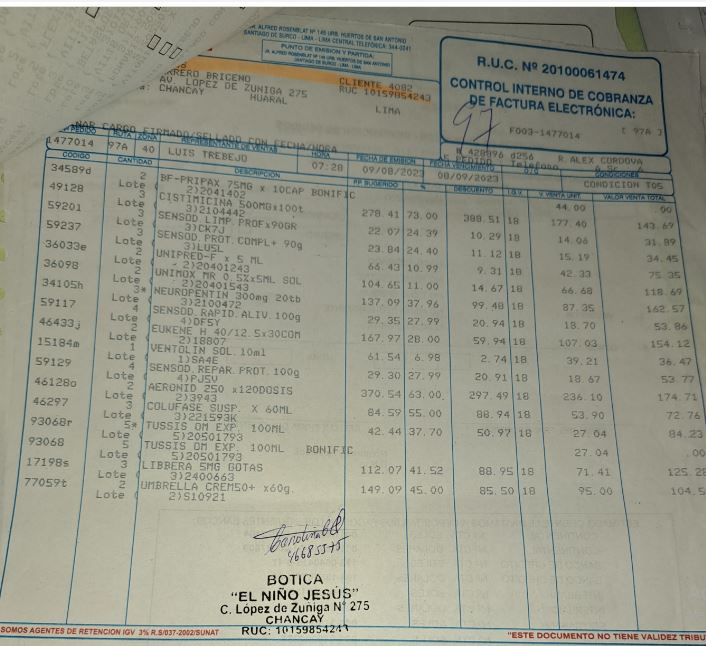 JR. ALFRED ROSENBLAT Nº 145 URB. HUERTOS DE SAN ANTONIO
SANTIAGO DE SURCO - LIMA - LIMA CENTRAL TELEFÓNICA: 344-0241
PUNTO DE EMISIÓN Y PARTIDA:
JR. ALFRED ROSENBLAT Nº 145 URB. HUERTOS DE SAN ANTONIO
SANTIAGO DE SURCO - LIMA - LIMA
R.U.C. Nº 20100061474
CONTROL INTERNO DE COBRANZA
DE FACTURA ELECTRÓNICA:
97
F003-1477014 ( 97A )
RRERO BRICENO CLIENTE 4082
AV LOPEZ DE ZUNIGA 275 RUC 10159854243
CHANCAY HUARAL LIMA
NAR CARGO FIRMADO/SELLADO CON FECHA/HORA
N 428996 d256 R.ALEX CORDOVA
PEDIDO ZONA REPRESENTANTE DE VENTAS HORA FECHA DE EMISIÓN FECHA VENCIMIENTO CONDICIONES
1477014 97A 40 LUIS TREBEJO 07:28 09/08/2023 08/09/2023 CONDICION T05
CÓDIGO CANTIDAD DESCRIPCIÓN PP. SUGERIDO % DESCUENTO I.G.V. V. VENTA UNIT. VALOR VENTA TOTAL
34589d 2 BF-PRIPAX 75MG x 10CAP BONIFIC 44.00 .00
Lote 2)2041402
49128 3 CISTIMICINA 500MGx100t 278.41 73.00 388.51 18 177.40 143.69
Lote 3)2104442
59201 3 SENSOD.LIMP.PROFx90GR 22.07 24.39 10.29 18 14.06 31.89
Lote 3)CK7J
59237 3 SENSOD.PROT.COMPL+ 90g 23.84 24.40 11.12 18 15.19 34.45
Lote 3)LU5L
36033e 2 UNIPRED-F x 5 ML 66.43 10.99 9.31 18 42.33 75.35
Lote 2)20401243
36098 2 UNIMOX MR 0.5%x5ML SOL 104.65 11.00 14.67 18 66.68 118.69
Lote 2)20401543
34105h 3* NEUROPENTIN 300mg 20tb 137.09 37.96 99.48 18 87.35 162.57
Lote 3)2100472
59117 4 SENSOD.RAPID.ALIV.100g 29.35 27.99 20.94 18 18.70 53.86
Lote 4)DF5Y
46433j 2 EUKENE H 40/12.5x30COM 167.97 28.00 59.94 18 107.03 154.12
Lote 2)18807
15184m 1 VENTOLIN SOL.10ml 61.54 6.98 2.74 18 39.21 36.47
Lote 1)SA4E
59129 4 SENSOD.REPAR.PROT.100g 29.30 27.99 20.91 18 18.67 53.77
Lote 4)PJ5V
46128o 2 AERONID 250 x120DOSIS 370.54 63.00 297.49 18 236.10 174.71
Lote 2)3943
46297 3 COLUFASE SUSP. X 60ML 84.59 55.00 88.94 18 53.90 72.76
Lote 3)221593K
93068r 5* TUSSIS DM EXP. 100ML 42.44 37.70 50.97 18 27.04 84.23
Lote 5)20501793
93068 5 TUSSIS DM EXP. 100ML BONIFIC 27.04 .00
Lote 5)20501793
17198s 3 LIBBERA 5MG GOTAS 112.07 41.52 88.95 18 71.41 125.28
Lote 3)2400663
77059t 2 UMBRELLA CREM50+ x60g. 149.09 45.00 85.50 18 95.00 104.5
Lote 2)S10921
BOTICA
"EL NIÑO JESÚS"
C. López de Zuñiga Nº 275
CHANCAY
RUC: 10159854243
SOMOS AGENTES DE RETENCION IGV 3% R.S/037-2002/SUNAT
"ESTE DOCUMENTO NO TIENE VALIDEZ TRIBU